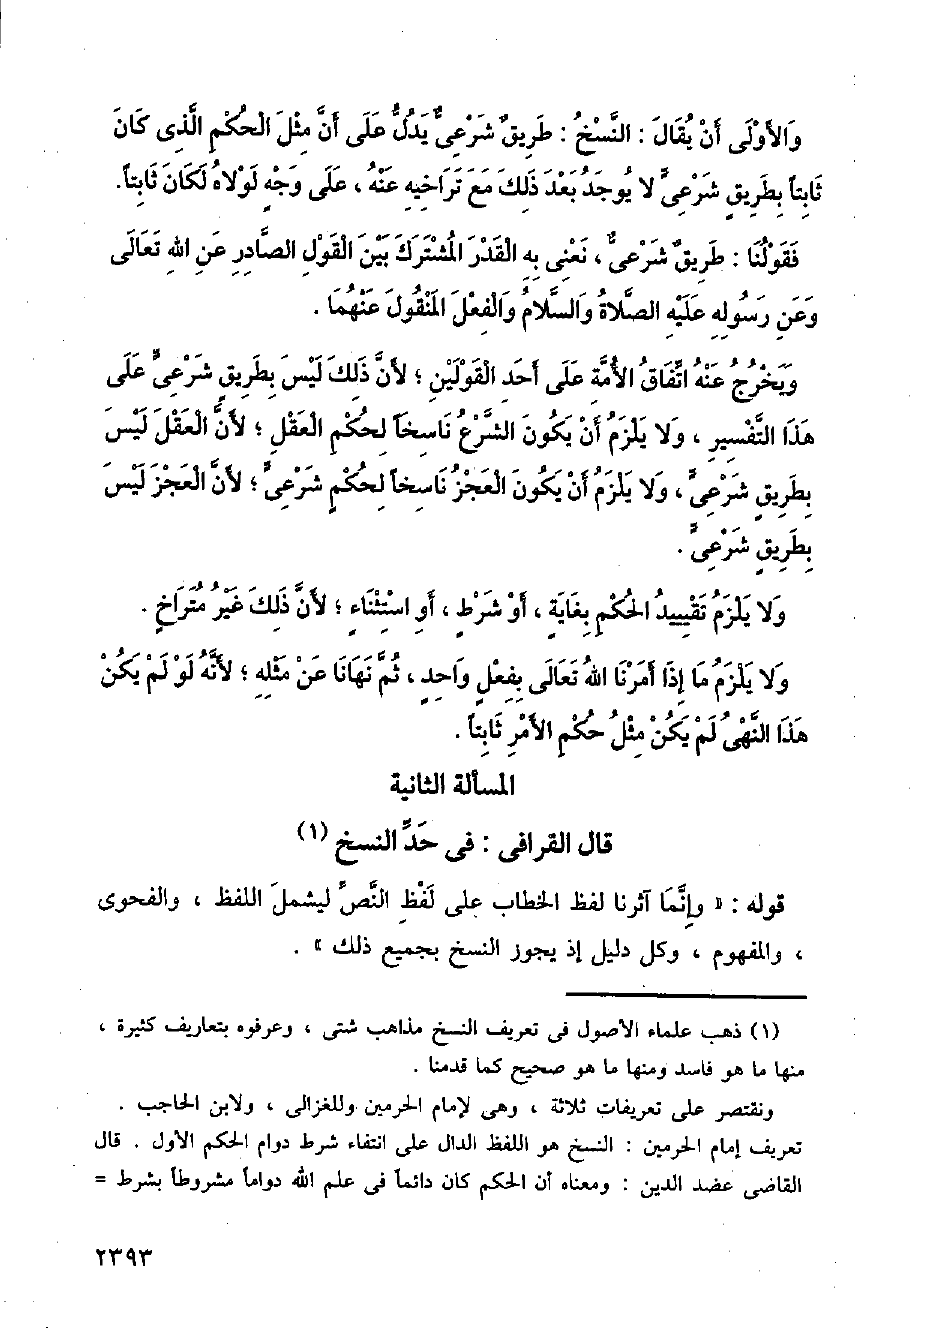 وَالأَوْلَى أَنْ يُقَالَ : النَّسْخُ : طَرِيقٌ شَرْعِىٌّ يَدُلُّ عَلَى أَنَّ مِثْلَ الْحُكْمِ الَّذِى كَانَ
ثَابِتاً بِطَرِيقٍ شَرْعِىٍّ لا يُوجَدُ بَعْدَ ذَلِكَ مَعَ تَرَاخِيهِ عَنْهُ ، عَلَى وَجْهٍ لَوْلاهُ لَكَانَ ثَابِتاً.
فَقَوْلُنَا : طَرِيقٌ شَرْعِىٌّ ، نَعْنِى بِهِ الْقَدْرَ الْمُشْتَرَكَ بَيْنَ الْقَوْلِ الصَّادِرِ عَنِ اللهِ تَعَالَى
وَعَنِ رَسُولِهِ عَلَيْهِ الصَّلاةُ وَالسَّلامُ وَالْفِعْلَ الْمَنْقُولَ عَنْهُمَا .
وَيَخْرُجُ عَنْهُ اتِّفَاقُ الأُمَّةِ عَلَى أَحَدِ الْقَوْلَيْنِ ؛ لأَنَّ ذَلِكَ لَيْسَ بِطَرِيقٍ شَرْعِىٍّ عَلَى
هَذَا التَّفْسِيرِ ، وَلا يَلْزَمُ أَنْ يَكُونَ الشَّرْعُ نَاسِخاً لِحُكْمِ الْعَقْلِ ؛ لأَنَّ الْعَقْلَ لَيْسَ
بِطَرِيقٍ شَرْعِىٍّ ، وَلا يَلْزَمُ أَنْ يَكُونَ الْعَجْزُ نَاسِخاً لِحُكْمٍ شَرْعِىٍّ ؛ لأَنَّ الْعَجْزَ لَيْسَ
بِطَرِيقٍ شَرْعِىٍّ .
وَلا يَلْزَمُ تَقْيِيدُ الْحُكْمِ بِغَايَةٍ ، أَوْ شَرْطٍ ، أَوِ اسْتِثْنَاءٍ ؛ لأَنَّ ذَلِكَ غَيْرُ مُتَرَاخٍ .
وَلا يَلْزَمُ مَا إِذَا أَمَرْنَا اللهُ تَعَالَى بِفِعْلٍ وَاحِدٍ ، ثُمَّ نَهَانَا عَنْ مِثْلِهِ ؛ لأَنَّهُ لَوْ لَمْ يَكُنْ
هَذَا النَّهْىُ لَمْ يَكُنْ مِثْلُ حُكْمِ الأَمْرِ ثَابِتاً .
المسألة الثانية
قال القرافى : فى حَدِّ النسخ (١)
قوله : « وإِنَّمَا آثرنا لفظ الخطاب على لَفْظِ النَّصِّ ليشملَ اللفظ ، والفحوى
، والمفهوم ، وكل دليل إذ يجوز النسخ بجميع ذلك » .
(١) ذهب علماء الأصول فى تعريف النسخ مذاهب شتى ، وعرفوه بتعاريف كثيرة ،
منها ما هو فاسد ومنها ما هو صحيح كما قدمنا .
ونقتصر على تعريفات ثلاثة ، وهى لإمام الحرمين وللغزالى ، ولابن الحاجب .
تعريف إمام الحرمين : النسخ هو اللفظ الدال على انتفاء شرط دوام الحكم الأول . قال
القاضى عضد الدين : ومعناه أن الحكم كان دائماً فى علم الله دواماً مشروطاً بشرط =
٢٣٩٣